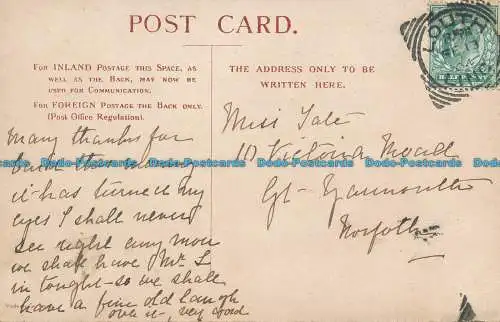 POST CARD.
FOR INLAND POSTAGE THIS SPACE, AS
WELL AS THE BACK, MAY NOW BE
USED FOR COMMUNICATION.
FOR FOREIGN POSTAGE THE BACK ONLY.
(Post Office Regulation).
THE ADDRESS ONLY TO BE
WRITTEN HERE.
LOUTH
HALFPENNY
Many thanks for
this morning
it has turned my
eyes I shall never
see right any more
we shall have Mr. L
in tonight - so we shall
have a fine old laugh
over it - very good
Miss Tate
Victoria Road
Gt. Yarmouth
Norfolk
Dodo-Postcards Dodo-Postcards Dodo-Postcards Dodo-Postcards